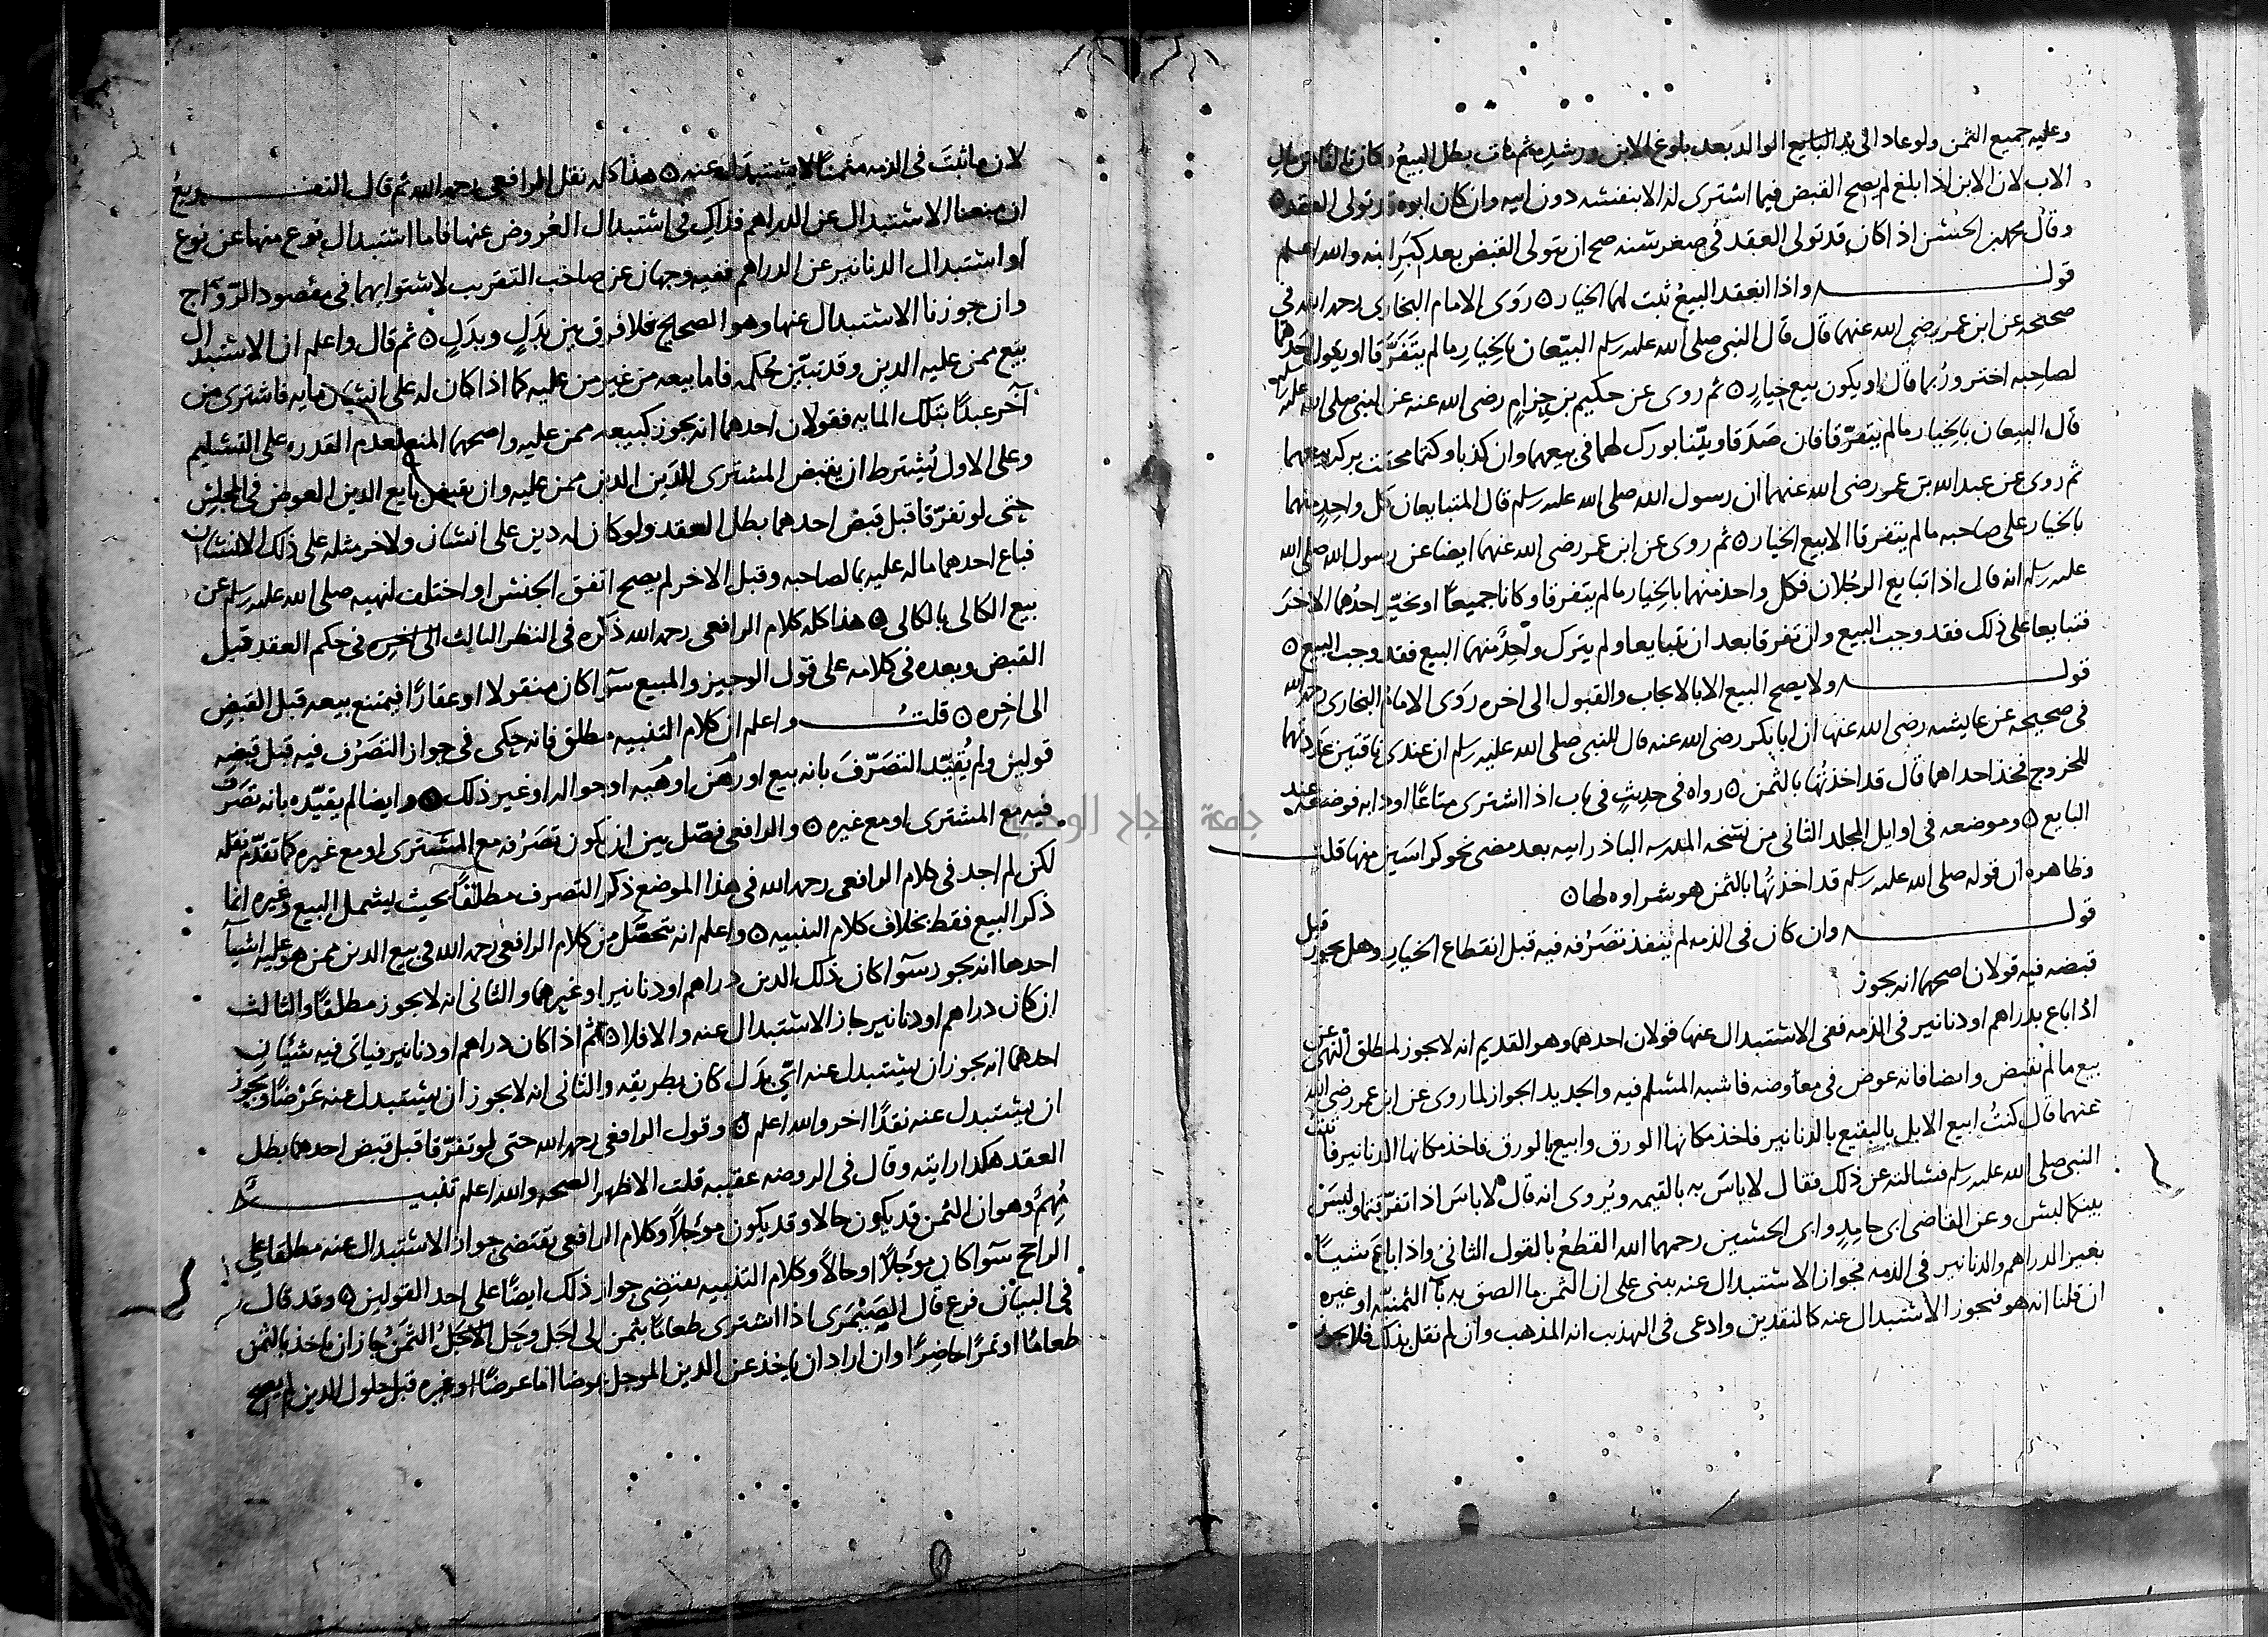 وعليه جميع الثمن ولو عاد الى يد البايع الوالد بعد بلوغ الابن ورشده ثم مات بطل البيع وكان من مال
الاب لان الابن اذا بلغ لم يصح القبض فيما اشترى له الا بنفسه دون ابيه وان كان ابوه تولى العقد
وقال محمد بن الحسن اذا كان قد تولى العقد في صغر سنه صح ان يتولى القبض بعد كبر ابنه والله اعلم
قوله واذا انعقد البيع ثبت لهما الخيار روى الامام البخاري رحمه الله في
صحيحه عن ابن عمر رضي الله عنهما قال قال النبي صلى الله عليه وسلم البيعان بالخيار ما لم يتفرقا او يقول احدهما
لصاحبه اختر وربما قال او يكون بيع خيار ثم روى عن حكيم بن حزام رضي الله عنه عن النبي صلى الله عليه وسلم
قال البيعان بالخيار ما لم يتفرقا فان صدقا وبينا بورك لهما في بيعهما وان كذبا وكتما محقت بركه بيعهما
ثم روى عن عبد الله بن عمر رضي الله عنهما ان رسول الله صلى الله عليه وسلم قال المتبايعان كل واحد منهما
بالخيار على صاحبه ما لم يتفرقا الا بيع الخيار ثم روى عن ابن عمر رضي الله عنهما ايضا عن رسول الله صلى الله
عليه وسلم انه قال اذا تبايع الرجلان فكل واحد منهما بالخيار ما لم يتفرقا وكانا جميعا او يخير احدهما الاخر
فتبايعا على ذلك فقد وجب البيع وان تفرقا بعد ان تبايعا ولم يترك واحد منهما البيع فقد وجب البيع
قوله ولا يصح البيع الا بالايجاب والقبول الى اخره روى الامام البخاري رحمه الله
في صحيحه عن عايشه رضي الله عنها ان ابا بكر رضي الله عنه قال للنبي صلى الله عليه وسلم ان عندي ناقتين اعددتهما
للخروج فخذ احداهما قال قد اخذتها بالثمن رواه في حديث في باب اذا اشترى متاعا او دابه فوضعه عند
البايع وموضعه في اوايل المجلد الثاني من نسخه المدرسه الباذراييه بعد مضي نحو كراسين منها قلت
وظاهره ان قوله صلى الله عليه وسلم قد اخذتها بالثمن هو شراوه لها
قوله وان كان في الذمه لم ينفذ تصرفه فيه قبل انقطاع الخيار وهل يجوز قبل
قبضه فيه قولان اصحهما انه يجوز
اذا باع بدراهم او دنانير في الذمه ففي الاستبدال عنها قولان احدهما وهو القديم انه لا يجوز لمطلق النهي عن
بيع ما لم يقبض وايضا فانه عوض في معاوضه فاشبه المسلم فيه والجديد الجواز لما روى عن ابن عمر رضي الله
عنهما قال كنت ابيع الابل بالبقيع بالدنانير فاخذ مكانها الورق وابيع بالورق فاخذ مكانها الدنانير فاتيت
النبي صلى الله عليه وسلم فسالته عن ذلك فقال لا باس به بالقيمه ويروى انه قال لا باس اذا تفرقتما وليس
بينكما لبس وعن القاضي ابي حامد وابي الحسين رحمهما الله القطع بالقول الثاني واذا باع شيا
بغير الدراهم والدنانير في الذمه فجواز الاستبدال عنه يبنى على ان الثمن ما الصق به باء الثمنيه او غيره
ان قلنا انه هو فيجوز الاستبدال عنه كالنقدين وادعى في التهذيب انه المذهب وان لم نقل بذلك فلا يجوز
لان ما ثبت في الذمه مثمنا لا يستبدل عنه هذا كله نقل الرافعي رحمه الله ثم قال التفريع
ان منعنا الاستبدال عن الدراهم فذاك في استبدال العروض عنها فاما استبدال نوع منها عن نوع
او استبدال الدنانير عن الدراهم ففيه وجهان عن صاحب التقريب لاستوايهما في مقصود الرواج
وان جوزنا الاستبدال عنها وهو الصحيح فلا فرق بين بدل وبدل ثم قال واعلم ان الاستبدال
بيع ممن عليه الدين وقد تبين حكمه فاما بيعه من غير من عليه كما اذا كان له على انسان مايه فاشترى من
آخر عبدا بتلك المايه فقولان احدهما انه يجوز كبيعه ممن عليه واصحهما المنع لعدم القدره على التسليم
وعلى الاول يشترط ان يقبض المشتري الدين ممن عليه وان يقبض بايع الدين العوض في المجلس
حتى لو تفرقا قبل قبض احدهما بطل العقد ولو كان له دين على انسان ولاخر مثله على ذلك الانسان
فباع احدهما ماله عليه بما لصاحبه وقبل الاخر لم يصح اتفق الجنس او اختلف لنهيه صلى الله عليه وسلم عن
بيع الكالي بالكالي هذا كله كلام الرافعي رحمه الله ذكره في النظر الثالث الى اخره في حكم العقد قبل
القبض وبعده في كلامه على قول الوجيز والمبيع سوآ كان منقولا او عقارا فيمتنع بيعه قبل القبض
الى اخره قلت واعلم ان كلام التنبيه مطلق فانه حكى في جواز التصرف فيه قبل قبضه
قولين ولم يقيد التصرف بانه بيع او رهن او هبه او حواله او غير ذلك وايضا لم يقيده بانه تصرف
فيه مع المشتري او مع غيره والرافعي فصل بين ان يكون تصرفه مع المشتري او مع غيره كما تقدم نقله
لكن لم اجد في كلام الرافعي رحمه الله في هذا الموضع ذكر التصرف مطلقا بحيث يشمل البيع وغيره انما
ذكر البيع فقط بخلاف كلام التنبيه واعلم انه يتحصل من كلام الرافعي رحمه الله في بيع الدين ممن هو عليه اشيآ
احدها انه يجوز سوآ كان ذلك الدين دراهم او دنانير او غيرهما والثاني انه لا يجوز مطلقا والثالث
ان كان دراهم او دنانير جاز الاستبدال عنه والا فلا ثم اذا كان دراهم او دنانير فياتي فيه شيئان
احدهما انه يجوز ان يستبدل عنه اي بدل كان بطريقه والثاني انه لا يجوز ان يستبدل عنه عرضا ويجوز
ان يستبدل عنه نقدا اخر والله اعلم وقول الرافعي رحمه الله حتى لو تفرقا قبل قبض احدهما بطل
العقد هكذا رايته وقال في الروضه عقيبه قلت الاظهر الصحه والله اعلم تنبيه
مهم وهو ان الثمن قد يكون حالا وقد يكون موجلا وكلام الرافعي يقتضي جواز الاستبدال عنه مطلقا على
الراجح سوآ كان مؤجلا او حالا وكلام التنبيه يقتضي جواز ذلك ايضا على احد القولين وقد قال
في البيان فرع قال الصيمري اذا اشترى طعاما بثمن الى اجل وحل الاجل الثمن جاز ان ياخذ بالثمن
طعاما او تمرا حاضرا وان اراد ان ياخذ عن الدين الموجل عوضا اما عرضا او غيره قبل حلول الدين لم يصح